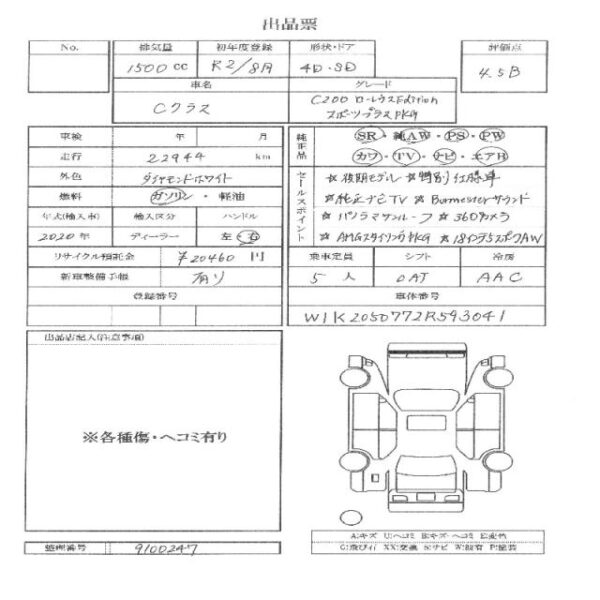 出品票
No. 排気量 初年度登録 形状・ドア 評価点
1500cc R2/8月 4D・SD 4.5B
車名 グレード
Cクラス C200 ローレウスEdition
スポーツプラスPKG
車検 年 月
走行 22944 km
外色 ダイヤモンドホワイト
燃料 ガソリン・軽油
年式(輸入車) 輸入区分 ハンドル
2020年 ディーラー 左・右
リサイクル預託金 ¥20460円
新車整備手帳 有り
登録番号
純正品 SR・純AW・PS・PW
カワ・TV・ナビ・エアB
セールスポイント
☆後期モデル ☆特別仕様車
☆純正ナビTV ☆Burmesterサウンド
☆パノラマサンルーフ ☆360°カメラ
☆AMGスタイリングPKG ☆18インチ5スポークAW
乗車定員 シフト 冷房
5人 OAT AAC
車体番号
W1K2050772R593041
出品店記入欄(注意事項)
※各種傷・ヘコミ有り
整理番号 9100247
A:キズ U:ヘコミ B:キズ・ヘコミ E:変色
G:飛び石 XX:交換 S:サビ W:補修有 P:塗装